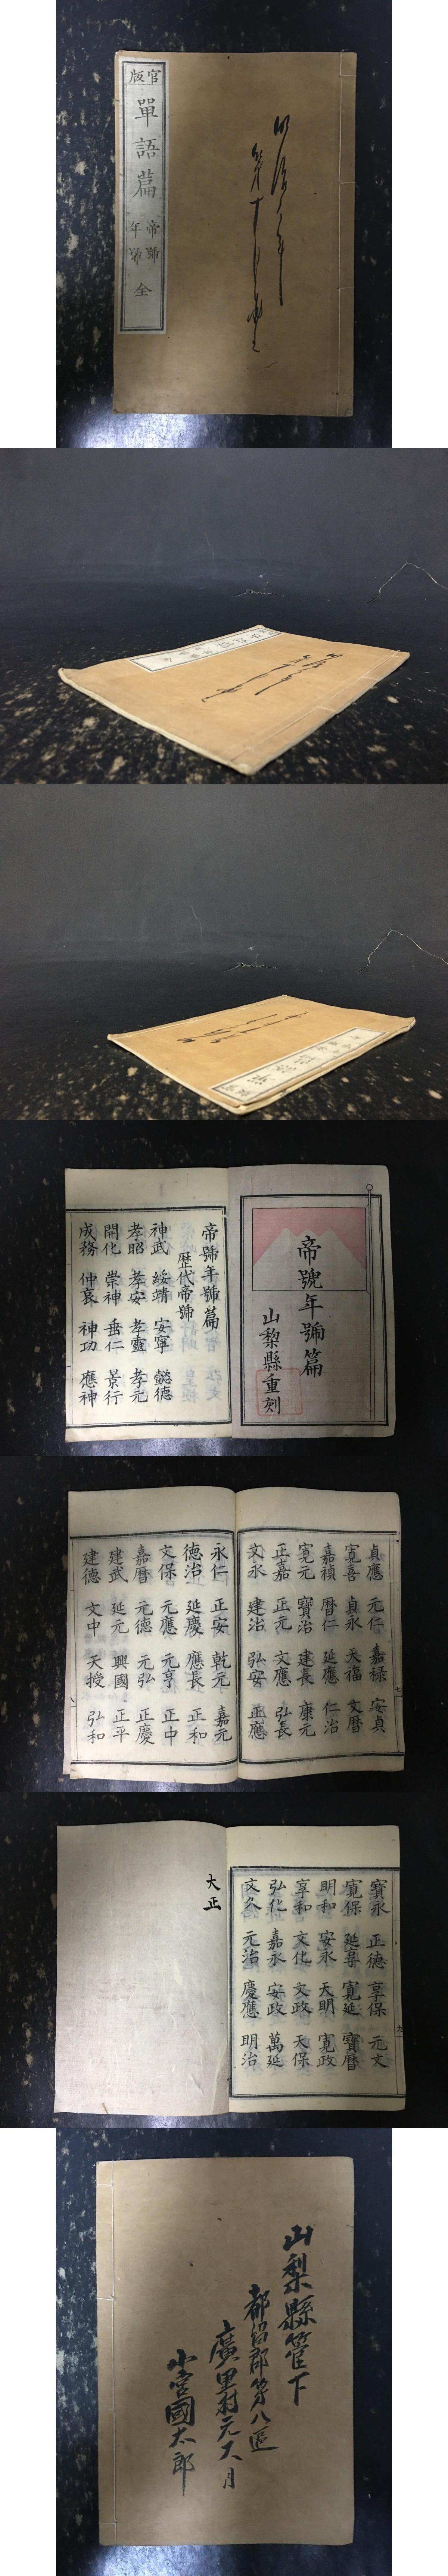 官版
單語篇
帝號
年號
全
明治
第十
帝號年號篇
山梨縣重刻
帝號年號篇
歴代帝號
神武 綏靖 安寧 懿德
孝昭 孝安 孝靈 孝元
開化 崇神 垂仁 景行
成務 仲哀 神功 應神
貞應 元仁 嘉禄 安貞
寛喜 貞永 天福 文暦
嘉禎 暦仁 延應 仁治
寛元 寶治 建長 康元
正嘉 正元 文應 弘長
文永 建治 弘安 正應
永仁 正安 乾元 嘉元
德治 延慶 應長 正和
文保 元應 元亨 正中
嘉暦 元德 元弘 正慶
建武 延元 興國 正平
建德 文中 天授 弘和
寶永 正德 享保 元文
寛保 延享 寛延 寶暦
明和 安永 天明 寛政
享和 文化 文政 天保
弘化 嘉永 安政 萬延
文久 元治 慶應 明治
大正
山梨縣管下
都留郡第八區
廣里村元大月
小宮國太郎